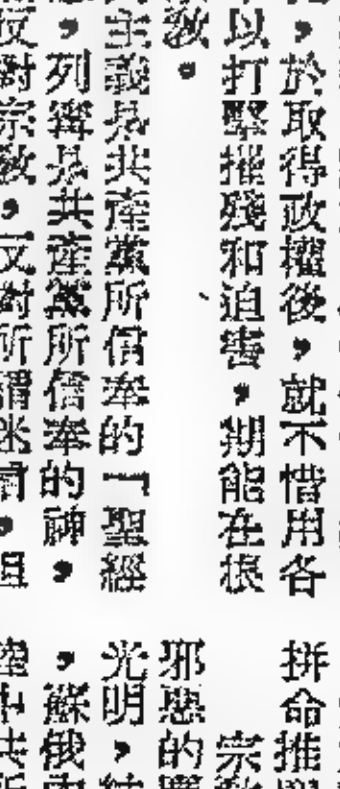 ，於取得政權後，就不惜用各
以打擊摧殘和迫害，期能在根
教。
主義是共產黨所信奉的「聖經
，列寧是共產黨所信奉的神，
反對宗教，反對所謂迷信，
拼命推
宗教
邪惡的
光明，
，蘇俄
中共